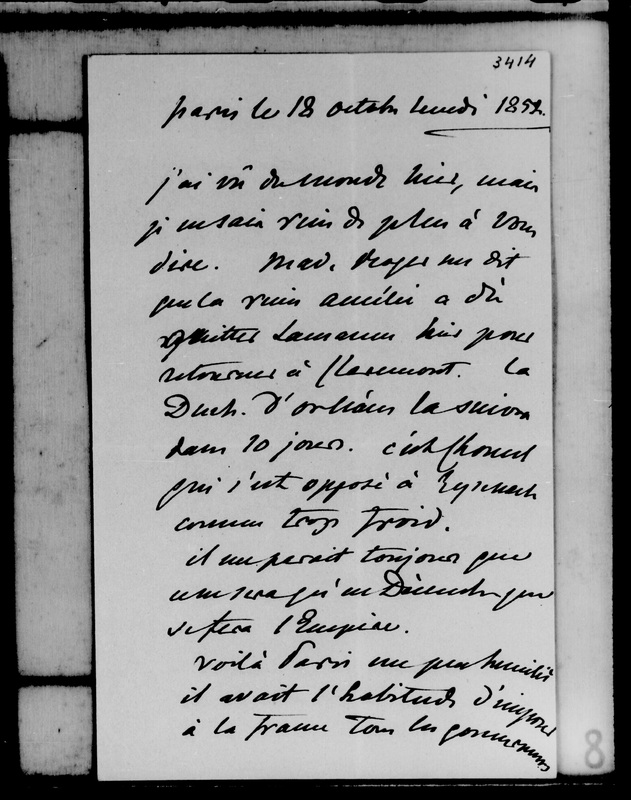 3414
paris le 18 octobre lundi 1852.
j'ai vû du monde hier, mais
je ne sais rien de plus à vous
dire. Mad. me dit
que la reine amélie a dû
quitter Lausanne hier pour
retourner à Claremont. la
Duch. d'orléans la suivra
dans 10 jours. c'est Chomel
qui s'est opposé à Eysenach
comme trop froid.
il me parait toujours que
ce ne sera qu'en Décembre que
se fera l'Empire.
voilà Paris un peu humilié
il avait l'habitude d'imposer
à la france tous les gouvernemens
8